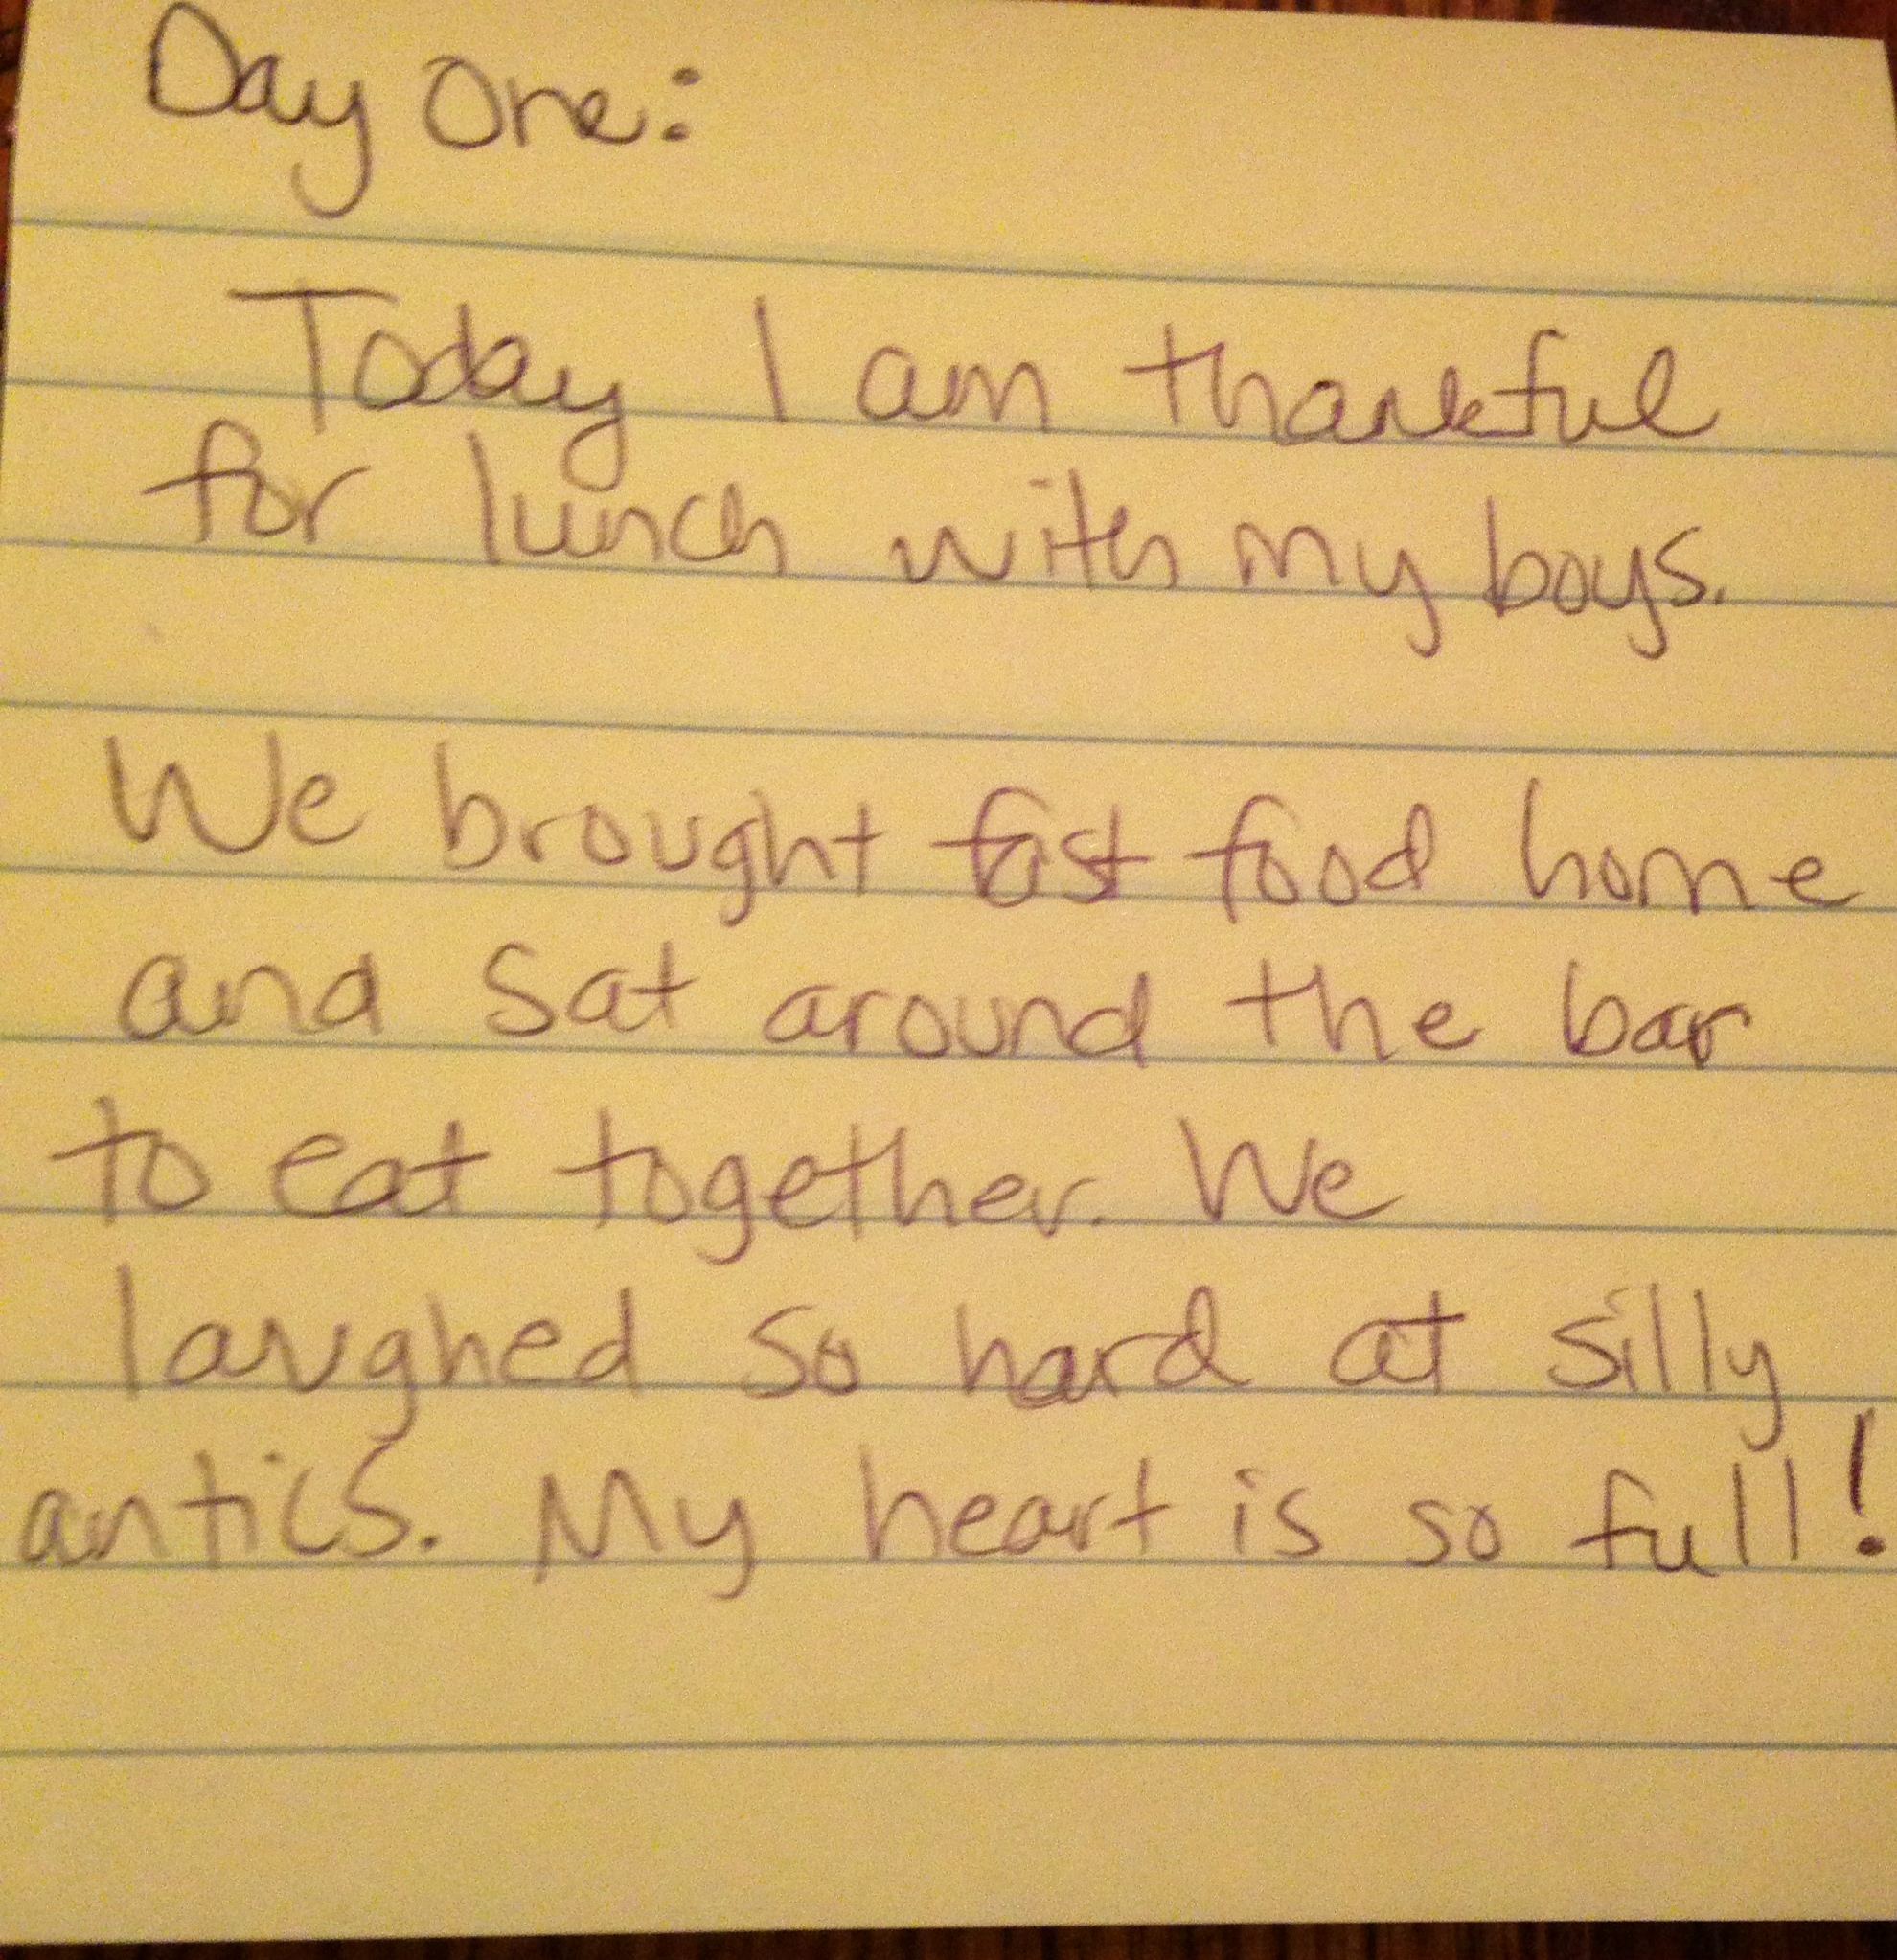 Day One:
Today I am thankful
for lunch with my boys.
We brought fast food home
and sat around the bar
to eat together. We
laughed so hard at silly
antics. My heart is so full!